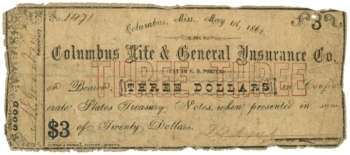 No. 1471
Columbus, Miss. May 1st, 1862.
3
Columbus Life & General Insurance Co.
THREE THREE
PAY TO
or Bearer, THREE DOLLARS in Confed-
erate States Treasury Notes, when presented in sums
$3 of Twenty Dollars.
GOOD